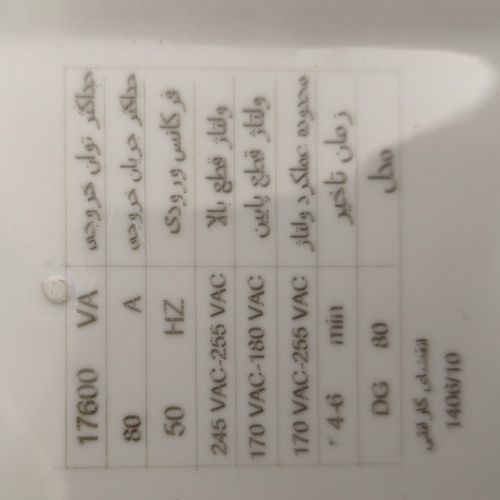 حداکثر توان خروجی 17600 VA
حداکثر جریان خروجی 80 A
فرکانس ورودی 50 HZ
ولتاژ قطع بالا 245 VAC-255 VAC
ولتاژ قطع پایین 170 VAC-180 VAC
محدوده عملکرد ولتاژ 170 VAC-255 VAC
زمان تاخیر 4-6 min
مدل DG 80
انقضای گارانتی
1406/10